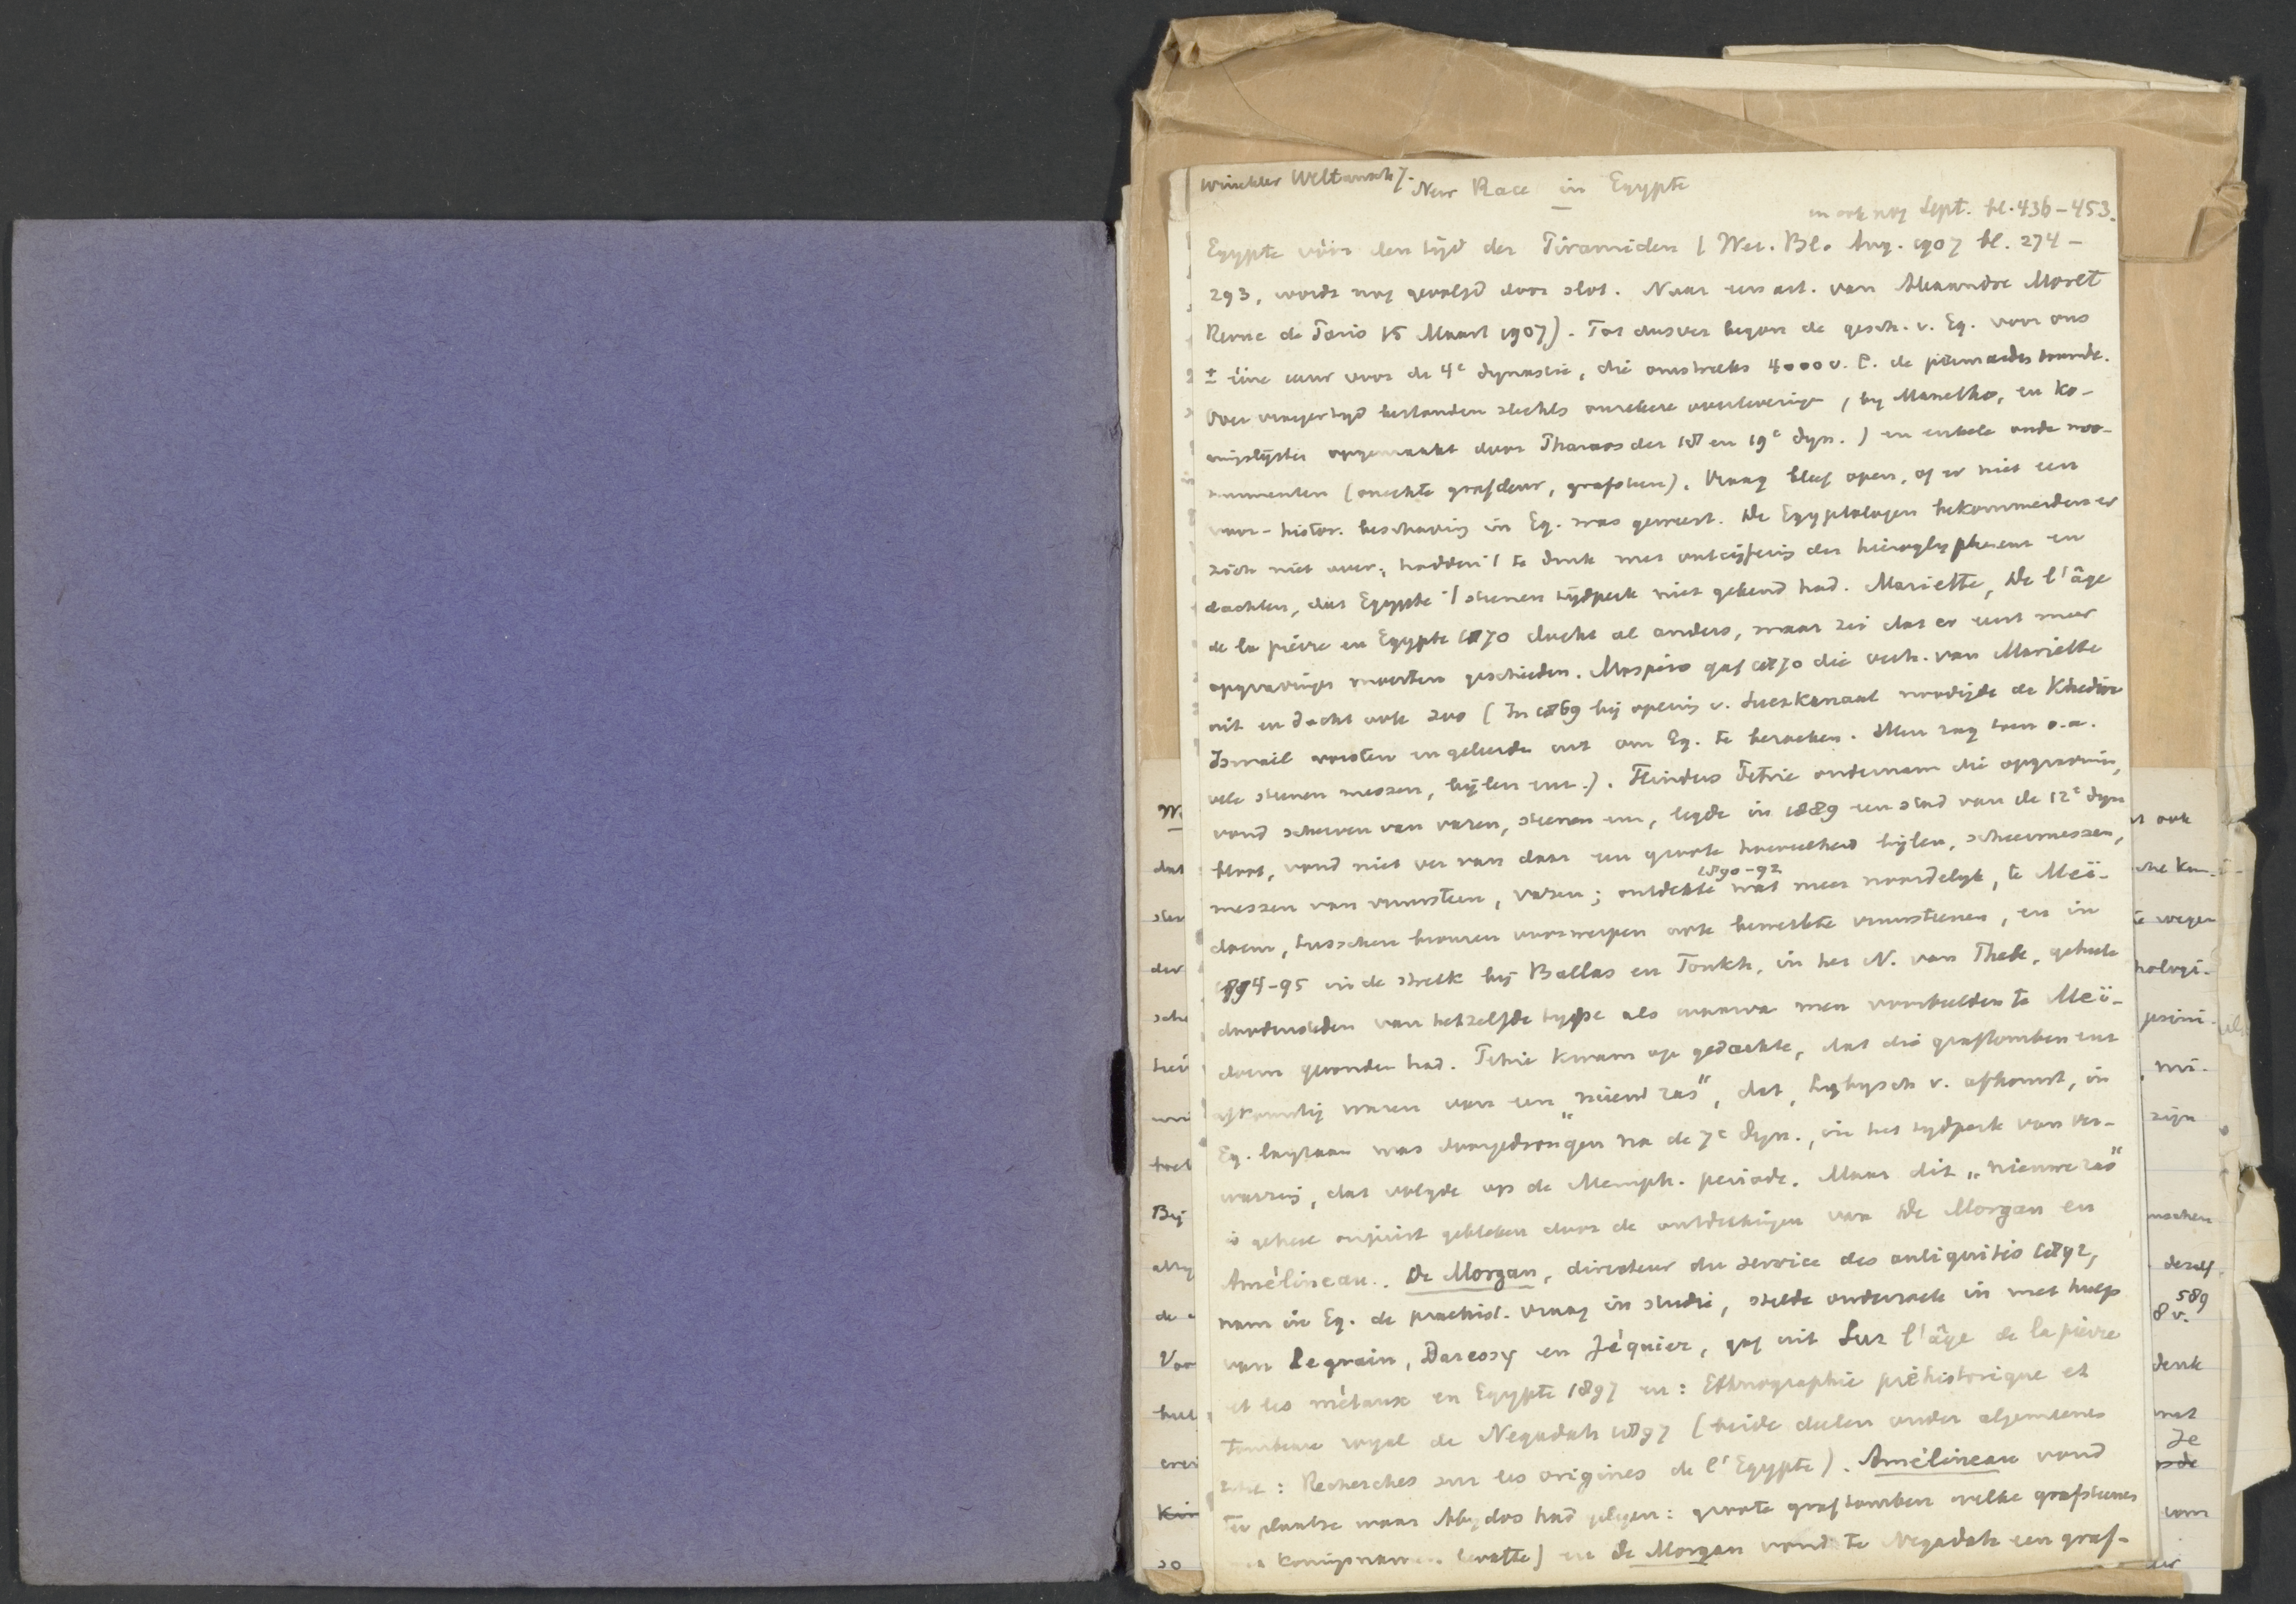 Winckler Weltansch. 7. New Race in Egypte
en ook nog Sept. bl. 436-453.
Egypte vóór den tijd der Piramiden (Wet. Bl. Aug. 1907 bl. 274-
293, wordt nog gevolgd door slot. Naar een art. van Alexandre Moret
Revue de Paris 15 Maart 1907). Tot dusver begon de gesch. v. Eg. voor ons
± ééne eeuw voor de 4e dynastie, die omstreeks 4000 v. C. de piramiden bouwde.
Over vroeger tijd bestonden slechts onzekere overleveringen (bij Manetho, en ko-
ningslijsten opgemaakt door Pharaos der 18 en 19e dyn.) en enkele oude mo-
numenten (onechte grafdeur, grafsteen). Vraag bleef open, of er niet een
voor-histor. beschaving in Eg. was geweest. De Egyptologen bekommerden er
zich niet over; hadden 't te druk met ontcijfering der hieroglyphen en
dachten, dat Egypte 't steenen tijdperk niet gekend had. Mariette, De l'âge
de la pierre en Egypte 1870 dacht al anders, maar zei dat er eerst meer
opgravingen moesten geschieden. Maspéro gaf die verh. van Mariette
uit en dacht ook zoo (In 1869 bij opening v. Suezkanaal noodigde de Khedive
Ismail vorsten en geleerden uit om Eg. te bezoeken. Men zag toen o.a.
vele steenen messen, bijlen enz.). Flinders Petrie ondernam die opgraving,
vond scherven van vazen, steenen enz, legde in 1889 een stad van de 12e dyn
bloot, vond niet ver van daar een groote hoeveelheid bijlen, scheermessen,
1890-92
messen van vuursteen, vazen; ontdekte wat meer noordelijk, te Meï-
doem, tusschen bronzen voorwerpen ook bewerkte vuursteenen, en in
1894-95 in de streek bij Ballas en Toukh, in het N. van Thebe, geheele
doodensteden van hetzelfde type als waarvan men voorbeelden te Meï-
doem gevonden had. Petrie kwam op gedachte, dat die graftomben enz
afkomstig waren van een „nieuw ras", dat, Lybysch v. afkomst, in
Eg. langzaam was doorgedrongen na de 7e dyn., in het tijdperk van ver-
warring, dat volgde op de Memph. periode. Maar dit „nieuwe ras"
is geheel onjuist gebleken door de ontdekkingen van De Morgan en
Amélineau. De Morgan, directeur du service des antiquités 1892,
nam in Eg. de praehist. vraag in studie, stelde onderzoek in met hulp
van Legrain, Daressy en Jéquier, gaf uit Sur l'âge de la pierre
et les métaux en Egypte 1897 en: Ethnographie préhistorique et
Tombeau royal de Negadah 1897 (beide deelen onder algemeenen
titel: Recherches sur les origines de l'Egypte). Amélineau vond
ter plaatse waar Abydos had gelegen: groote graftomben welke grafsteenen
koningsnamen bevatte) en de Morgan vond te Negadah een graf-